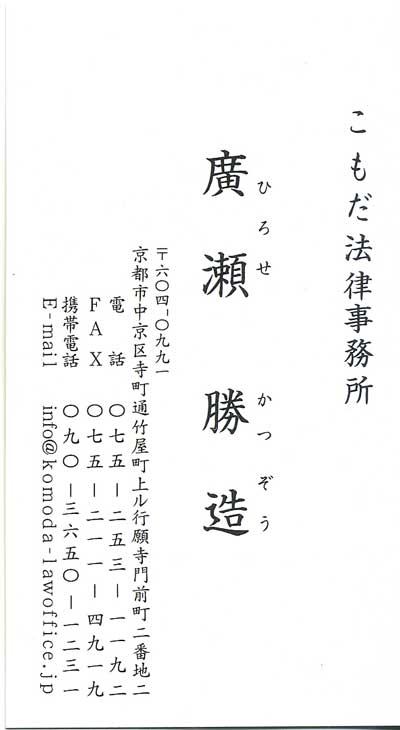 こもだ法律事務所
ひろせ かつぞう
廣瀬 勝造
〒六〇四-〇九九一
京都市中京区寺町通竹屋町上ル行願寺門前町二番地二
電話 〇七五-二五三-一一九二
FAX 〇七五-二一一-四九一九
携帯電話 〇九〇-三六五〇-一二三一
E-mail info@komoda-lawoffice.jp